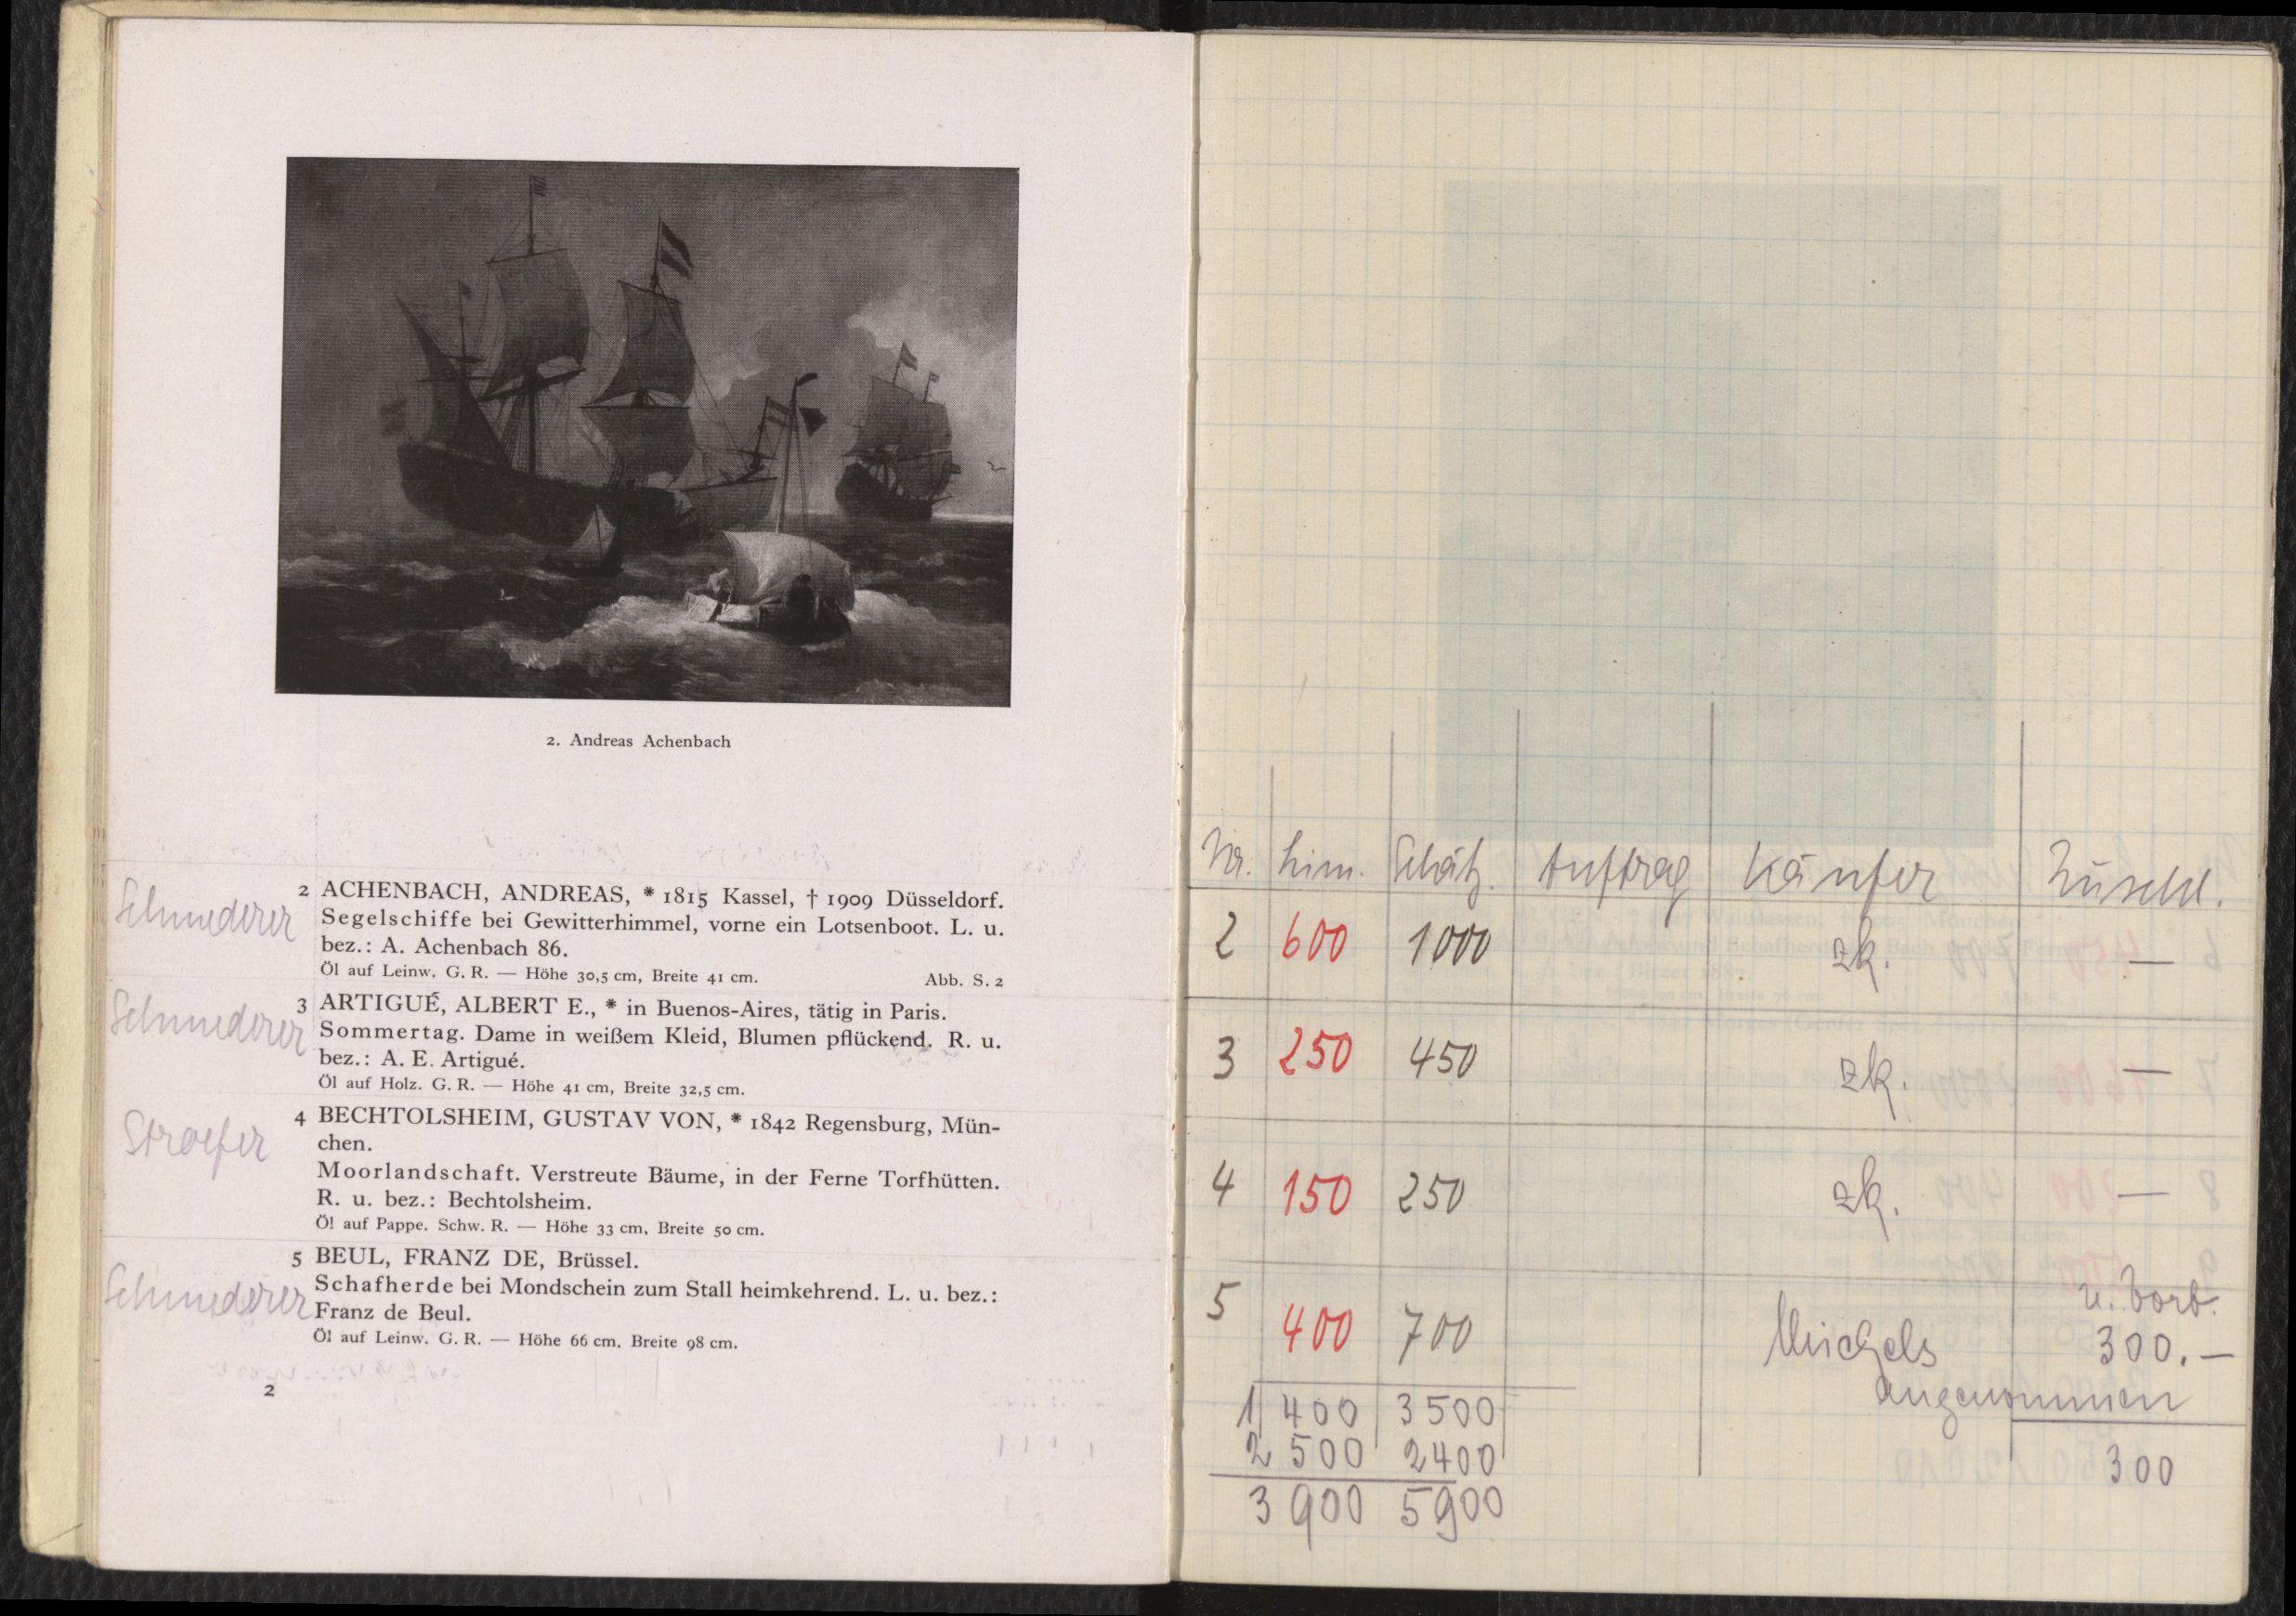 2. Andreas Achenbach
Schmederer
2 ACHENBACH, ANDREAS, * 1815 Kassel, † 1909 Düsseldorf.
Segelschiffe bei Gewitterhimmel, vorne ein Lotsenboot. L. u.
bez.: A. Achenbach 86.
Öl auf Leinw. G. R. — Höhe 30,5 cm, Breite 41 cm. Abb. S. 2
Schmederer
3 ARTIGUÉ, ALBERT E., * in Buenos-Aires, tätig in Paris.
Sommertag. Dame in weißem Kleid, Blumen pflückend. R. u.
bez.: A. E. Artigué.
Öl auf Holz. G. R. — Höhe 41 cm, Breite 32,5 cm.
Stroefer
4 BECHTOLSHEIM, GUSTAV VON, * 1842 Regensburg, Mün-
chen.
Moorlandschaft. Verstreute Bäume, in der Ferne Torfhütten.
R. u. bez.: Bechtolsheim.
Öl auf Pappe. Schw. R. — Höhe 33 cm, Breite 50 cm.
Schmederer
5 BEUL, FRANZ DE, Brüssel.
Schafherde bei Mondschein zum Stall heimkehrend. L. u. bez.:
Franz de Beul.
Öl auf Leinw. G. R. — Höhe 66 cm, Breite 98 cm.
2
Nr. Lim. Schätz. Auftrag Käufer Zuschl.
2 600 1000 zk. —
3 250 450 zk. —
4 150 250 zk. —
u. Vorb.
5 400 700 Michels 300.—
angenommen
1 400 3500
2 500 2400 300
3 900 5900